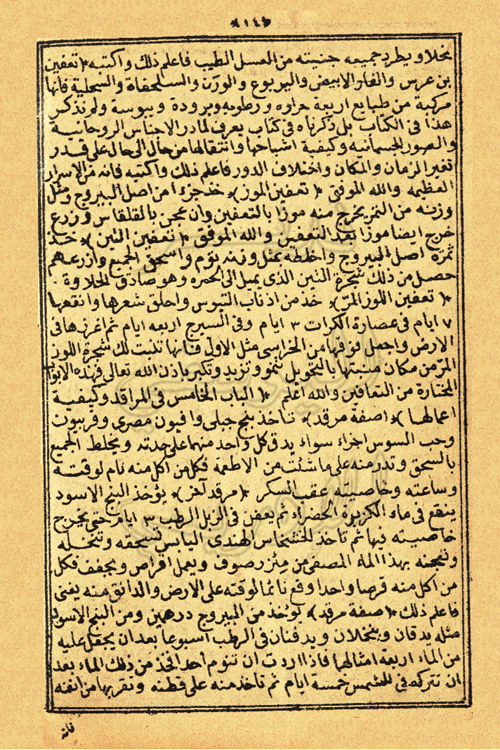 ﴿١٤٦﴾
بخلا ويطرد جميعه جنيته من العسل الطيب فاعلم ذلك واكتمه ﴿ تعفين
بن عرس والفار الابيض واليربوع والورن والسلحفاة والنحلية فانها
مركبة من طبايع اربعة حرارة ورطوبة وبرودة ويبوسة ولم نذكر
هذا فى الكتاب بل ذكرناه فى كتاب يعرف لمادر الاجناس الروحانية
والصور الجسمانية وكيفية اشباحها وانتقالها من حال الى حال على قدر
تغير الزمان والمكان واختلاف الدور فاعلم ذلك واكتمه فانه من الاسرار
العظيمه والله الموفق ﴿ تعفين الموز ﴾ خذ جزءا من اصل اليبروح ومثل
وزنه من التمر يخرج منه موزا بالتعفين وان عجن بالقلقاس وزرع
خرج ايضا موزا بعد التعفين والله الموفق ﴿ تعفين التين ﴾ خذ
ثمرة اصل اليبروح واخلطه بمثل وزنه ثوم واسحق الجميع وازرعهم
حصل من ذلك شجرة التين الذى يميل الى الحمره وهو صادق الحلاوة
﴿ تعفين اللوز المر ﴾ خذ من اذناب التيوس واحلق شعرها وانقعها
٧ ايام فى عصارة الكراث ٣ ايام وفى السيرج اربعه ايام ثم اغرزها فى
الارض واجعل فوقها من الخراسى مثل الاول فانها تنبت لك شجرة اللوز
المر من مكان منبتها بالتحويل تنمو وتزيد وتكبر باذن الله تعالى فهذه الابواب
المختارة من التعافين والله اعلم ﴿ الباب الخامس فى المراقد وكيفية
اعمالها ﴾ ﴿ صفة مرقد ﴾ تأخذ بنج جبلى وافيون مصرى وفربيون
وحب السوس اجزاء سواء يدق كل واحد منها على حدته ويخلط الجميع
بالسحق وتدر منه على ما شئت من الاطعمه فكل من اكل منه نام لوقته
وساعته وخاصيته عقب السكر ﴿ مرقد آخر ﴾ يؤخذ البنج الاسود
ينقع فى ماء الكزبرة الخضراء ثم يعفن فى الزبل الرطب ٣ ايام حتى يخرج
خاصيته فيها ثم تأخذ الخشخاش الهندى اليابس تسحقه وتنخله
وتعجنه بهذا الماء المصفى من مئزر صوف ويعمل اقراص ويجفف فكل
من اكل منه قرصا واحدا وقع نائما لوقته على الارض والدانق منه يعنى
فاعلم ذلك ﴿ صفة مرقد ﴾ يؤخذ من اليبروح درهمين ومن البنج الاسود
مثله يدقان وينخلان ويدفنان فى الرطب اسبوعا بعد ان يجعل عليه
من الماء اربعة امثالها فاذا اردت ان تنوم أحد الخذ من ذلك الماء بعد
ان تتركه فى الشمس خمسة ايام ثم تأخذ منه على قطنه وتقربها من انفه
فانه